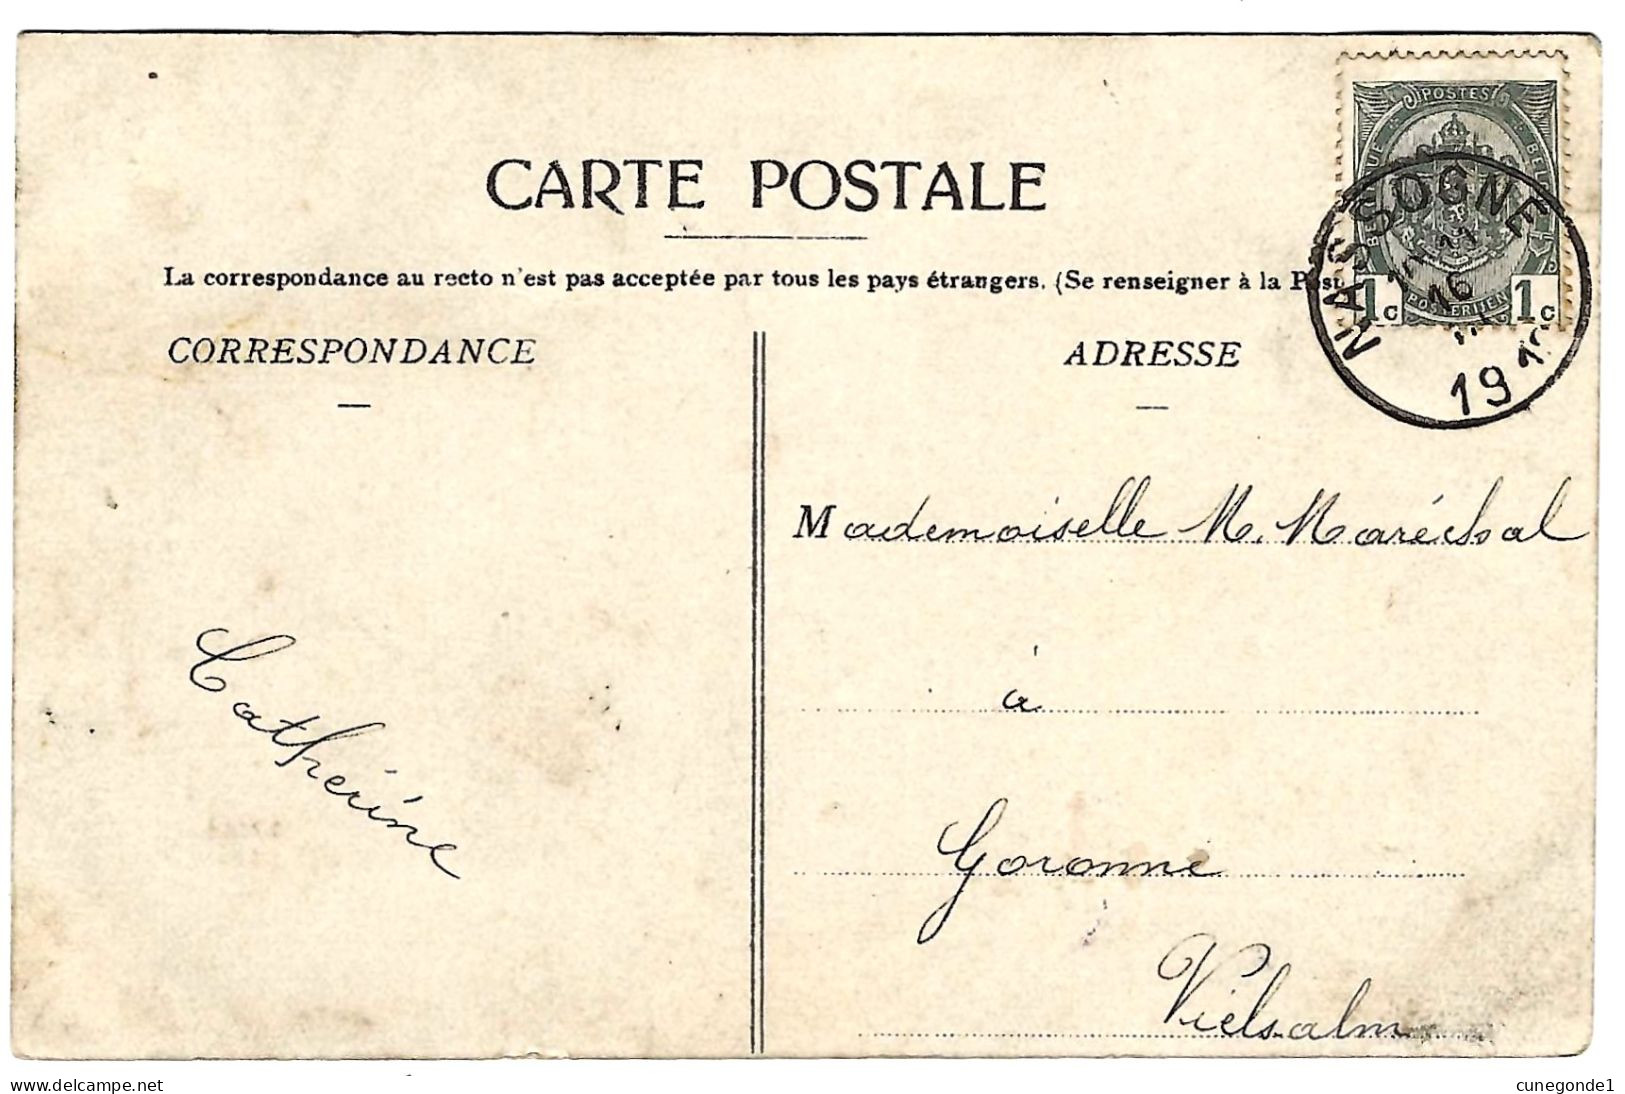 CARTE POSTALE
La correspondance au recto n'est pas acceptée par tous les pays étrangers. (Se renseigner à la Post
CORRESPONDANCE
ADRESSE
POSTES
BELGIQUE
BELGIË
POSTERIJEN
1c 1c
NASSOGNE
11
16
19
Mademoiselle M. Maréchal
à
Goronne
Vielsalm
Cathérine
www.delcampe.net
cunegonde1